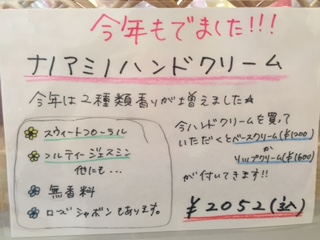 今年もでました!!!
ナノアミノハンドクリーム
今年は2種類香りが増えました☆
スウィートフローラル
フルーティージャスミン
他にも…
無香料
ローズシャボンもあります。
今ハンドクリームを買って
いただくとベースクリーム(¥1200)
か
リップクリーム(¥1600)
が付いてきます!!
¥2052(込)